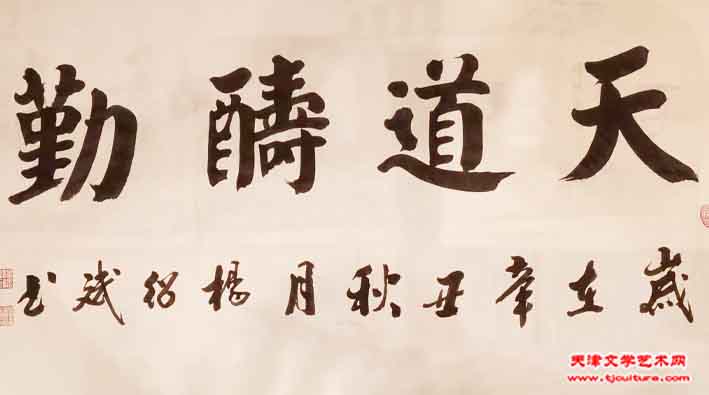 天道醻勤
嵗在辛丑秋月楊紹斌书
天津文学艺术网
www.tjculture.com